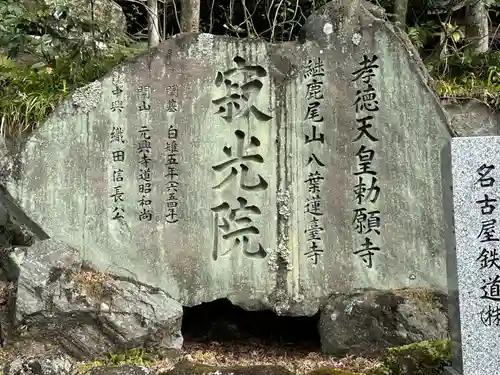 孝徳天皇勅願寺
継鹿尾山八葉蓮臺寺
寂光院
開基 白雉五年(六五四年)
開山 元興寺道昭和尚
中興 織田信長公
名古屋鉄道(株)